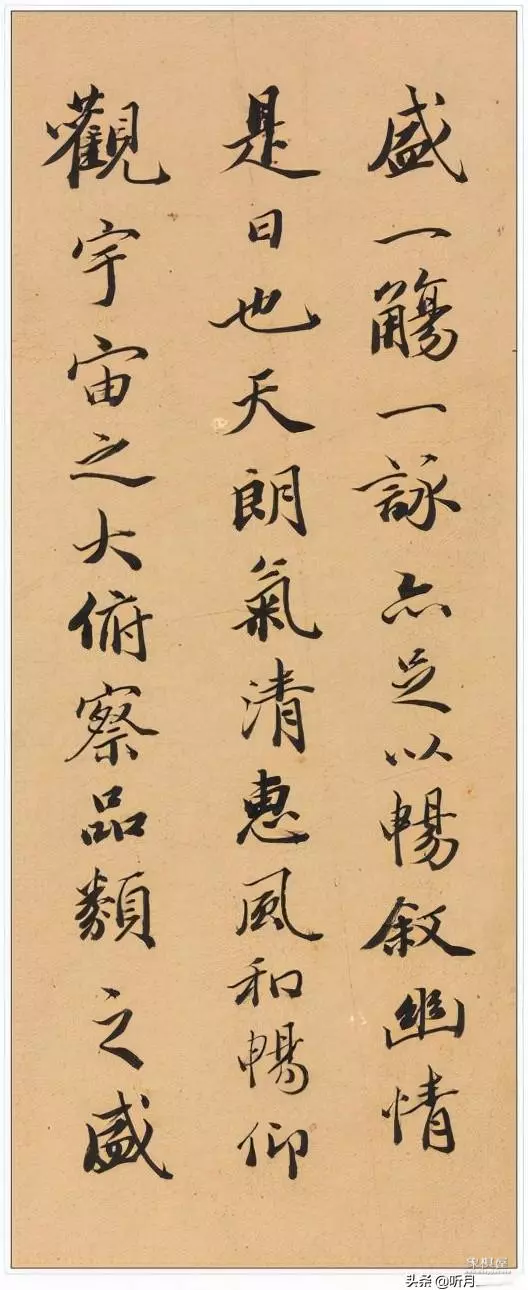 盛一觴一詠亦足以暢叙幽情
是日也天朗氣清惠風和暢仰
觀宇宙之大俯察品類之盛
头条 @听月